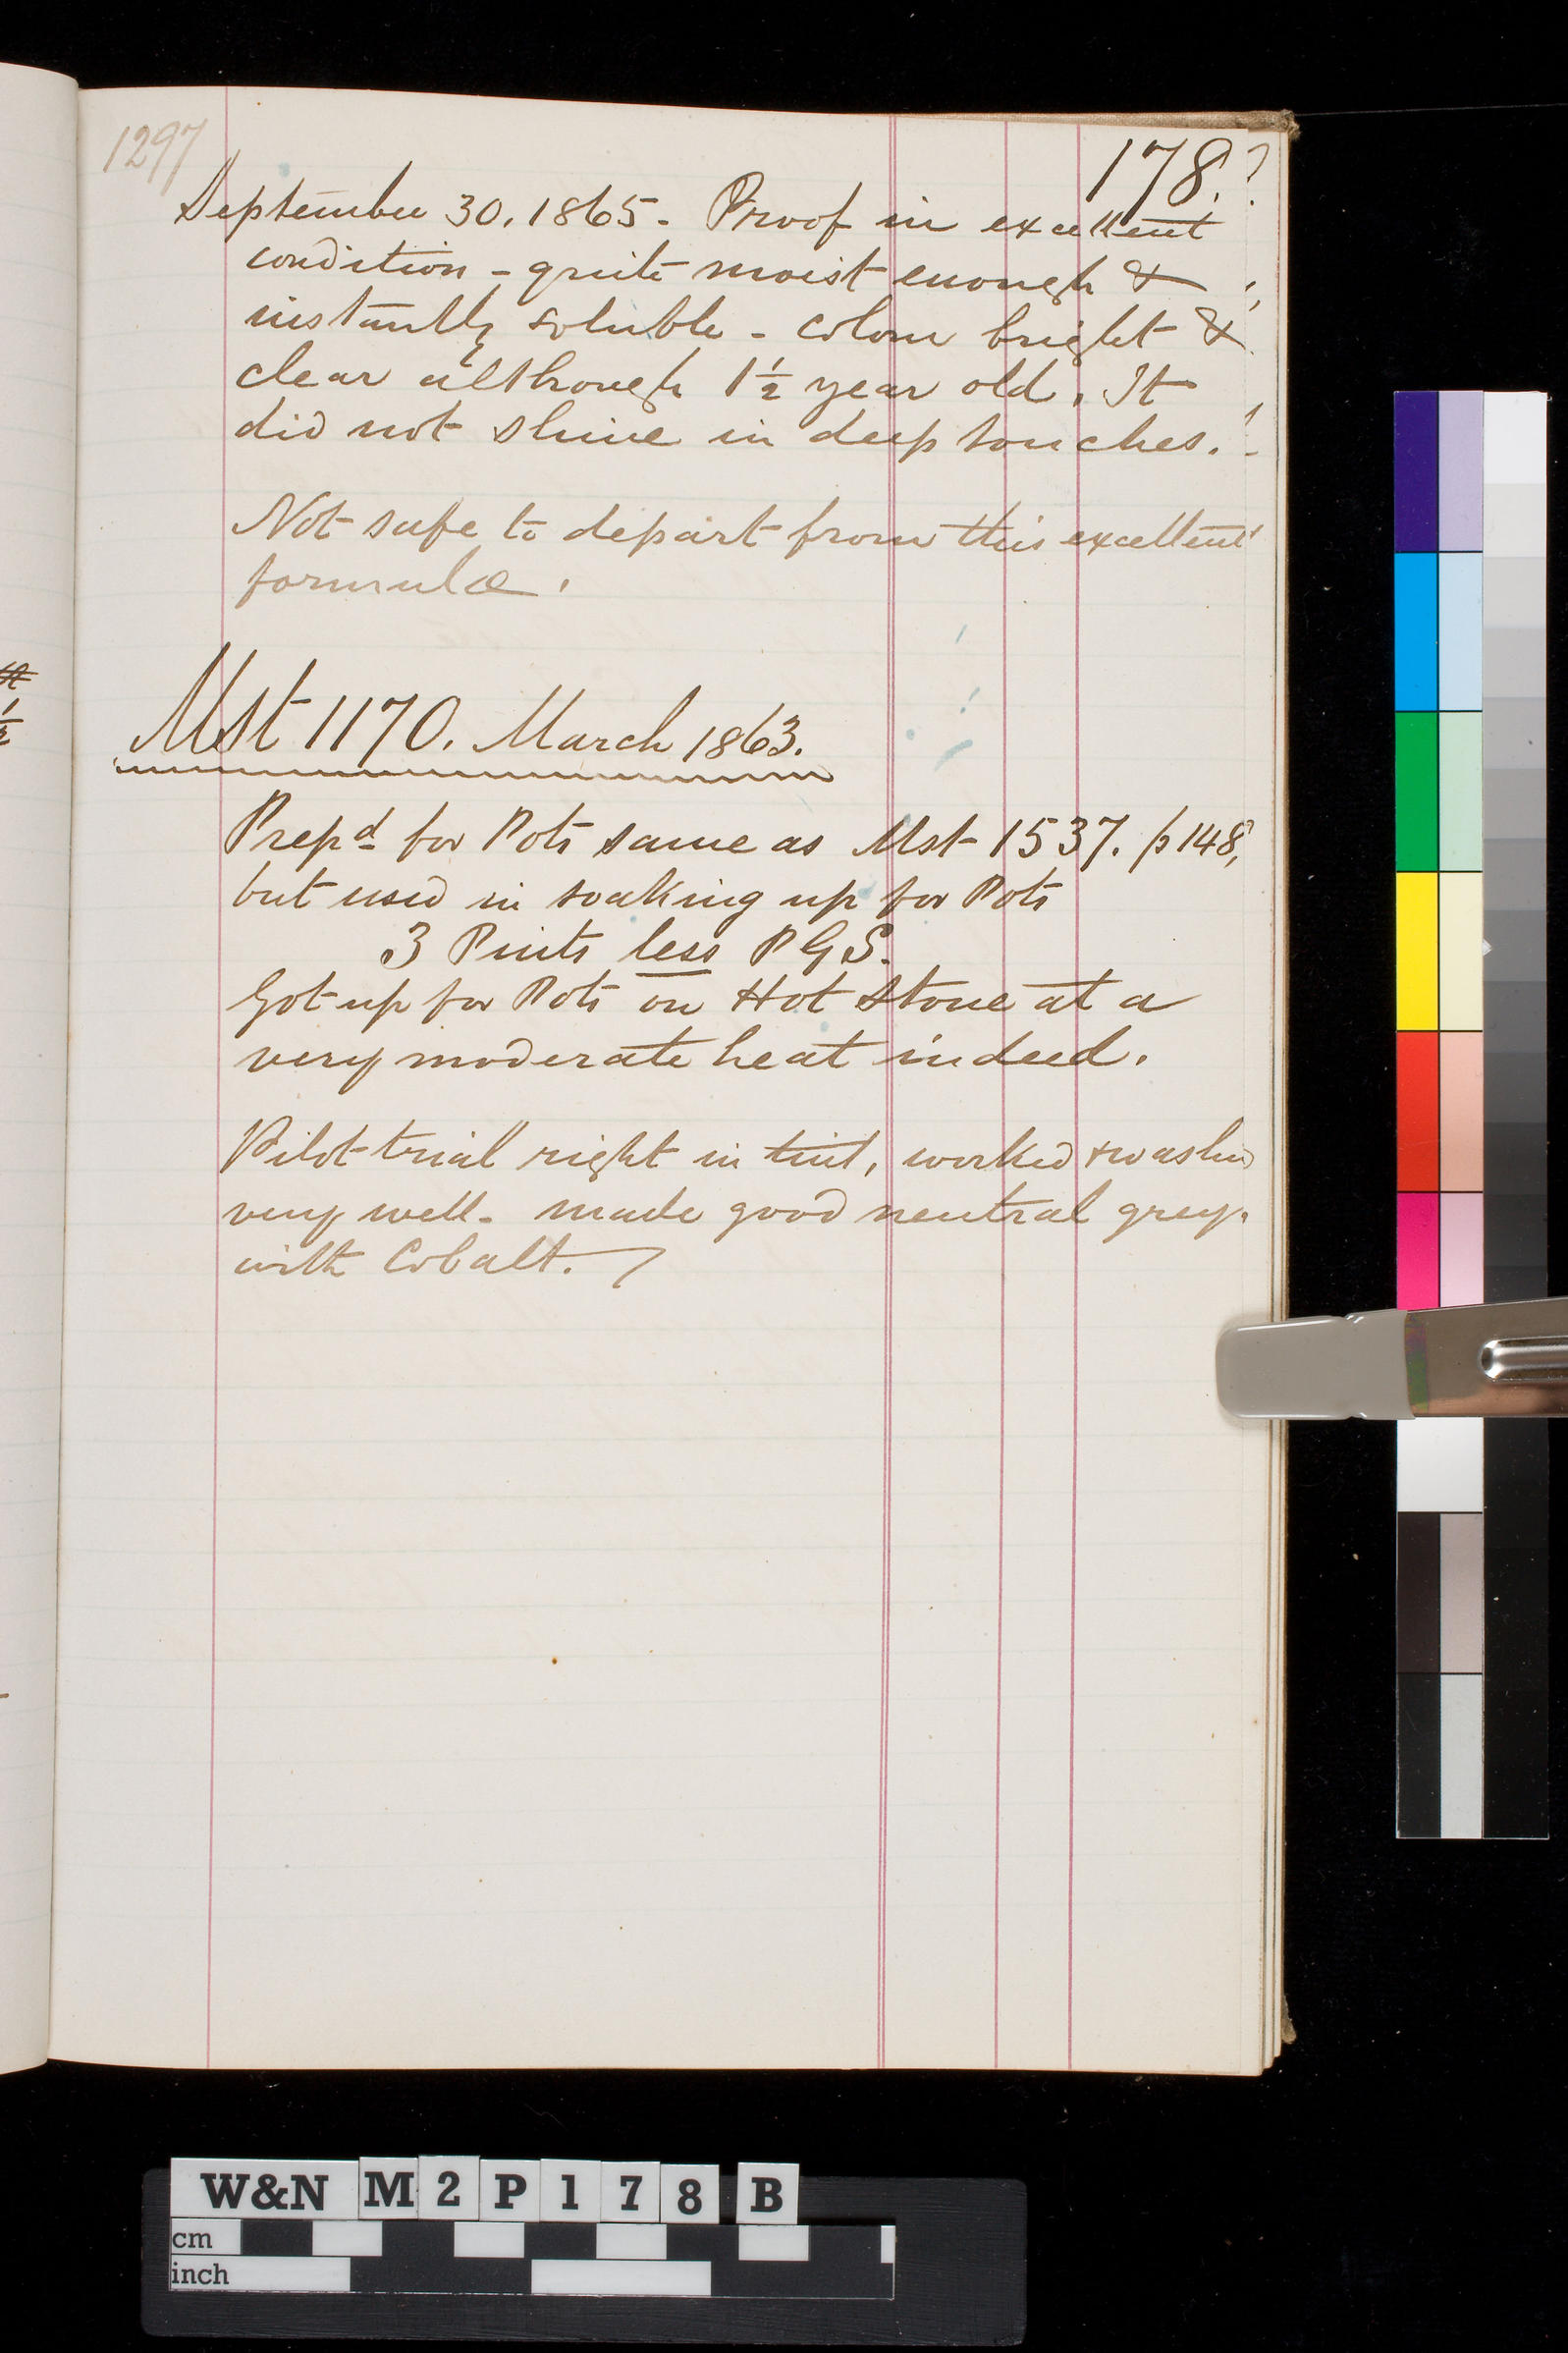 1297
178.?
September 30. 1865 - Proof in excellent
condition - quite moist enough &
instantly soluble - colour bright &
clear although 1½ year old. It
did not shine in deep touches.
Not safe to depart from this excellent
formula.
Mst 1170. March 1863.
Prepd for Pots same as Mst 1537. p148,
but used in soaking up for Pots
3 Pints less PGS.
Got up for Pots on Hot Stone at a
very moderate heat indeed.
Pilot trial right in tint, worked & washed
very well - made good neutral grey.
with Cobalt.
W&N M2P178 B
cm
inch